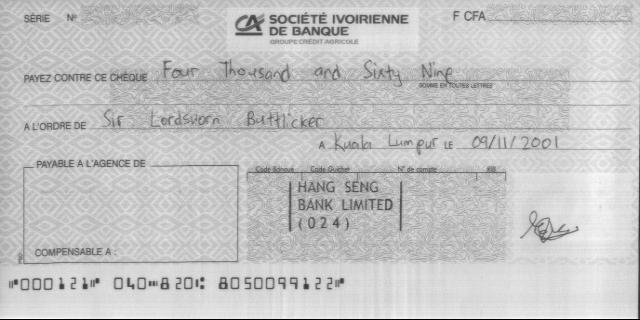 SÉRIE N°
CA SOCIÉTÉ IVOIRIENNE
DE BANQUE
GROUPE CRÉDIT AGRICOLE
F CFA
PAYEZ CONTRE CE CHÈQUE Four Thousand and Sixty Nine
SOMME EN TOUTES LETTRES
A L'ORDRE DE Sir Lordsvorn Buttlicker
A Kuala Lumpur LE 09/11/2001
PAYABLE A L'AGENCE DE
Code Banque Code Guichet N° de compte RIB
HANG SENG
BANK LIMITED
(024)
COMPENSABLE A :
⑈000121⑈ 040⑉820⑆ 8050099122⑈